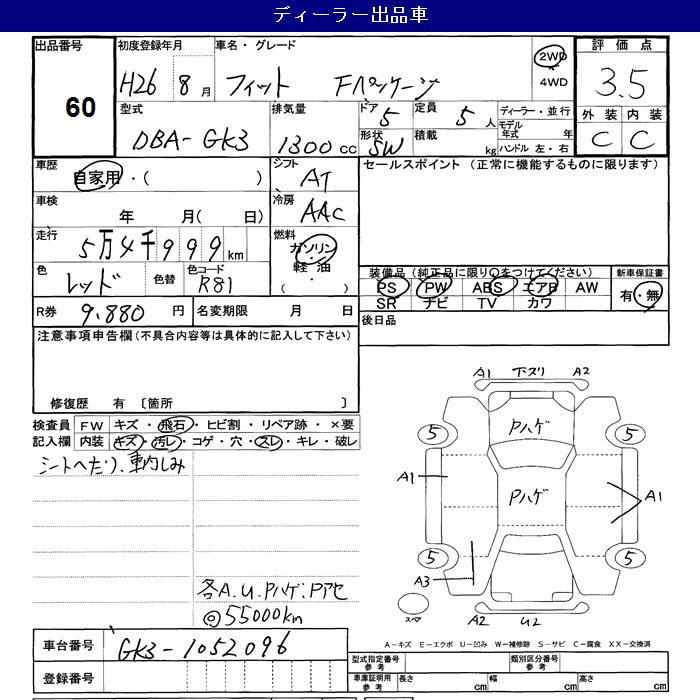 ディーラー出品車
出品番号 60
初度登録年月 H26 8月
車名・グレード フィット Fパッケージ
2WD
4WD
評価点 3.5
外装 内装
C C
型式 DBA-GK3
排気量 1300 cc
ドア 5
形状 SW
定員 5人
積載 kg
ディーラー・並行
モデル年式 年
ハンドル 左・右
車歴 自家用・( )
シフト AT
セールスポイント (正常に機能するものに限ります)
車検 年 月( 日)
冷房 AAC
走行 5万4千999km
燃料 ガソリン・軽油・( )
色 レッド 色替 色コード R81
装備品 (純正品に限り○をつけてください) 新車保証書
PS PW ABS エアB AW 有・無
SR ナビ TV カワ
R券 9,880 円 名変期限 月 日
後日品
注意事項申告欄(不具合内容等は具体的に記入して下さい)
修復歴 有 〔箇所 〕
検査員 FW キズ・飛石・ヒビ割・リペア跡・×要
記入欄 内装 キズ・汚レ・コゲ・穴・スレ・キレ・破レ
シートへたり、車内しみ
各A.U.Pハゲ.Pアセ
@55000km
A1 下ズリ A2
Pハゲ
5 5
A1 Pハゲ A1
5 5
A3
スペア A2 U2
A-キズ E-エクボ U-凹み W-補修跡 S-サビ C-腐食 XX-交換済
車台番号 GK3-1052096
登録番号
型式指定番号 参考 類別区分番号 参考
車庫証明用 参考 長さ cm 幅 cm 高さ cm